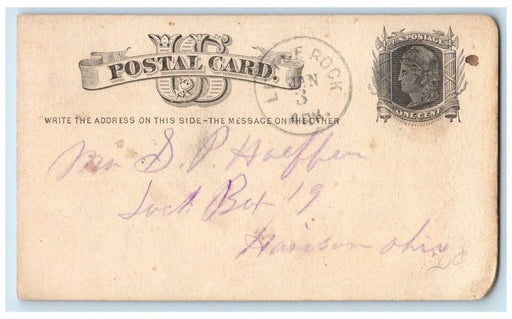 US
POSTAL CARD.
U.S. POSTAGE
ONE CENT
LITTLE ROCK
JUN
3
ARK.
WRITE THE ADDRESS ON THIS SIDE-THE MESSAGE ON THE OTHER
Mr S. P.
Lock Box 19
Harison Ohio
20¢